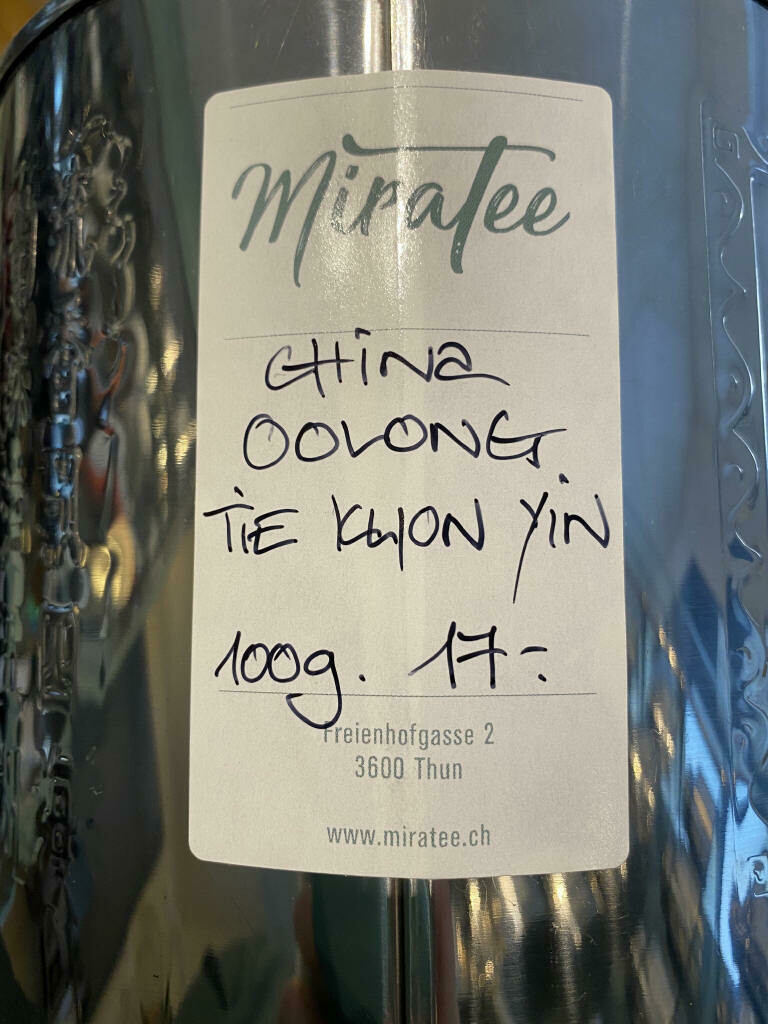 Miratee
CHINA
OOLONG
TIE KWON YIN
100g. 17.-
Freienhofgasse 2
3600 Thun
www.miratee.ch